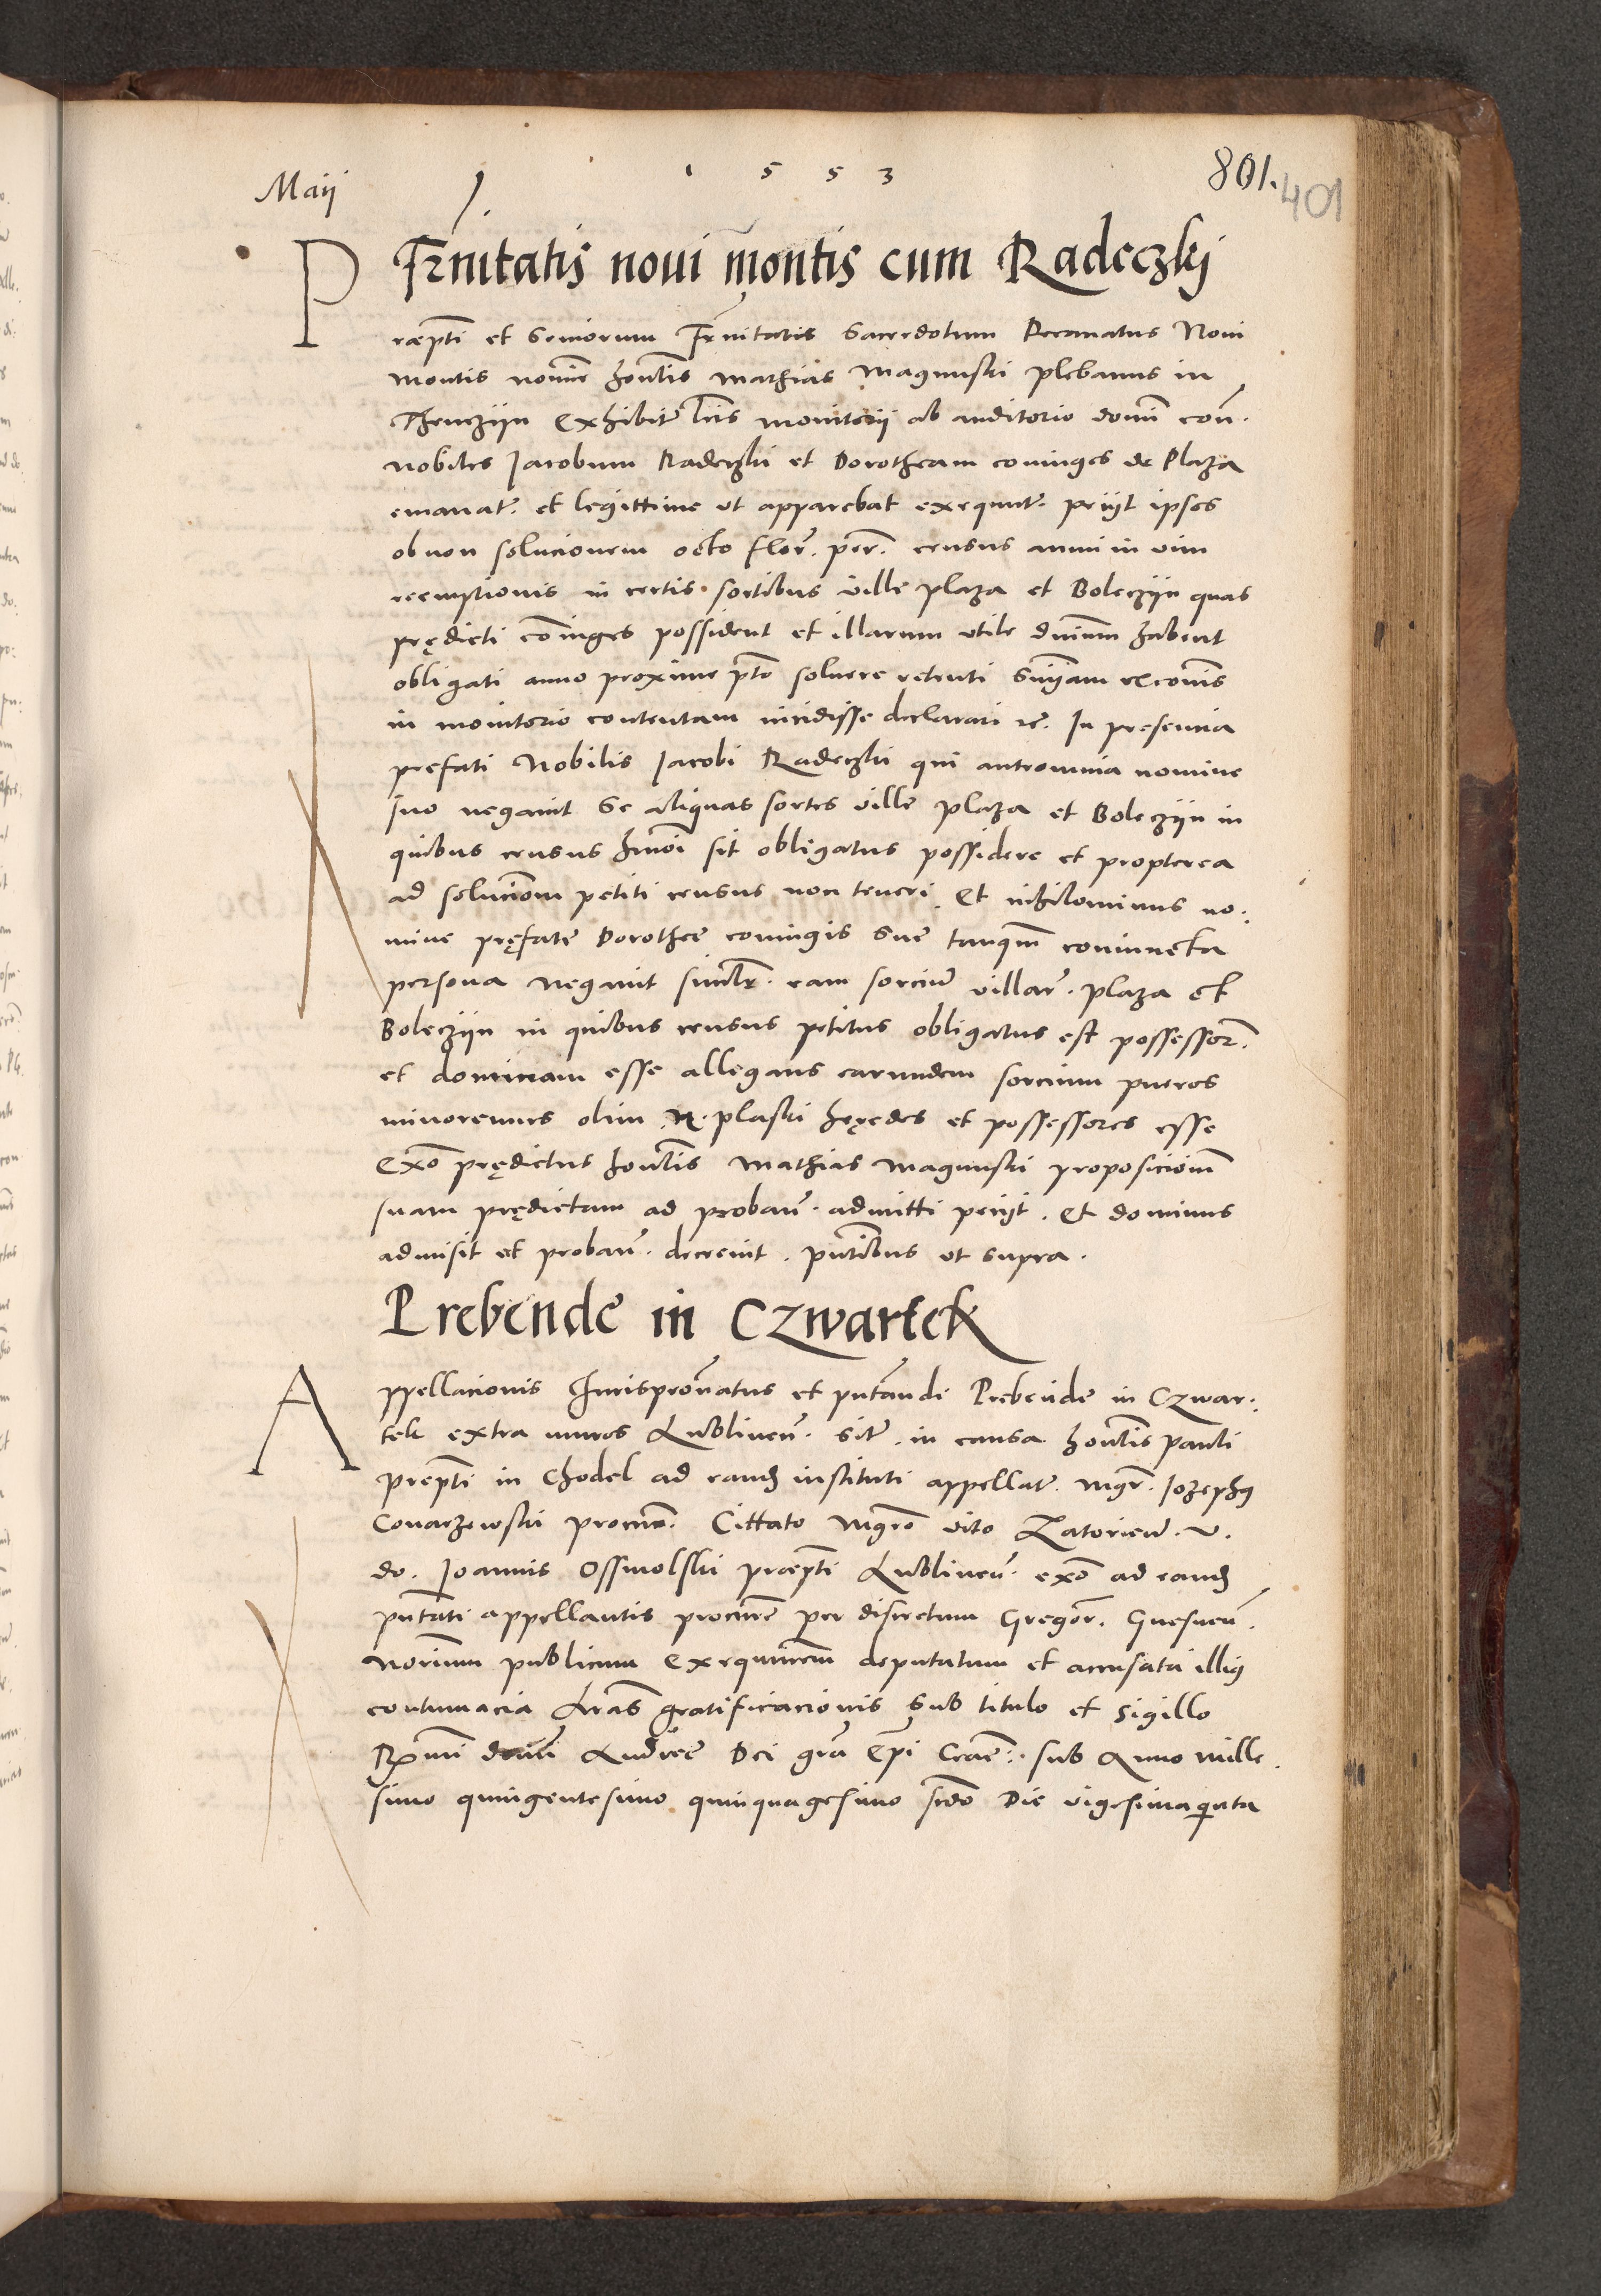 Maij 1. 1553 801. 401
Frnitatis noui montis cum Radeczkj
Praepti et Seniorum Frnitatis Sacerdotum Decanatus Noui
Montis nomine honlis Mathias Magnuski plebanus in
Thenczijn Exhibitis lris monitorij ab auditorio domi con.
Nobiles Jacobum Radeczki et Dorotheam coniuges de Plaza
emanat. et legittime ut apparebat exequut. petijt ipsos
ob non solucionem octo flor. per. census annui in vim
reemptionis in certis sortibus ville plaza et Boleczijn quas
prędicti coniuges possident et illarum vtile dnium habent
obligati anno proxime pto soluere retenti Sniam excoīs
in monitorio contentam incidisse declarari rc. In presencia
prefati Nobilis Jacobi Radeczki qui anteomnia nomine
suo negauit Se aliquas sortes ville plaza et Boleczijn in
quibus census hmoi sit obligatus possidere et propterea
ad solucionem petiti census non teneri. Et nihilominus no:
mine pręfate Dorothee coniugis sue tanqm coniuncta
persona negauit similr. eam sorcium villar. plaza et
Boleczijn in quibus census petitus obligatus est possessor.
et dominam esse allegans earundem sorcium pueros
minorennes olim N. plaski hęredes et possessores esse
Exo prędictus honlis Mathias Magnuski proposicionem
suam prędictam ad proban. admitti petijt. Et dominus
admisit et proban. decreuit. pntibus vt supra.
Prebende in Czwartek
Appellacionis Jurispronatus et pntandi Prebende in Czwar:
tek extra muros Lublinen. sit. in causa honlis Pauli
prepti in Chodel ad eand instituti appellat. Mgr. Jozephus
Conarzewski procur. Cittato Mgro vito Zatorien. v.
do. Joannis Ossmolski praepti Lublinen. exo ad eand
pntati appellantis procure per discretum Gregor. Gnesnen.
Norium publicum Exequutorem deputatum et accusata illius
contumacia Lras gratificacionis sub titulo et sigillo
Rmi domi Andree Dei gra Epi Crac. sub Anno mille
simo quingentesimo quinquagesimo scdo Die vigesimaqinta